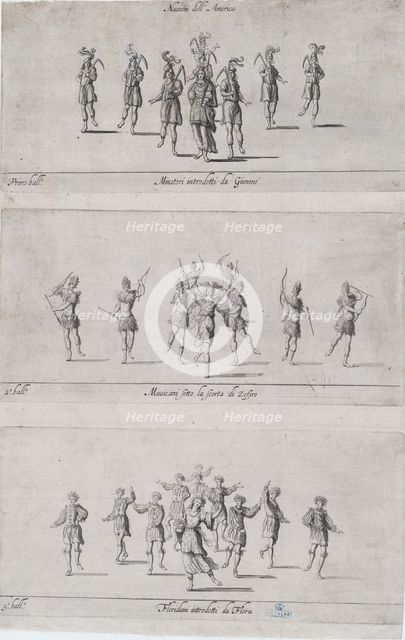 Nazioni dell' America
Primo ball:
Minatori introdotti da Giunone
Heritage
Heritage
2º. ball:
Messicani sotto la scorta di Zefiro
Heritage
Heritage
3º. ball:
Floridani introdotti da Flora